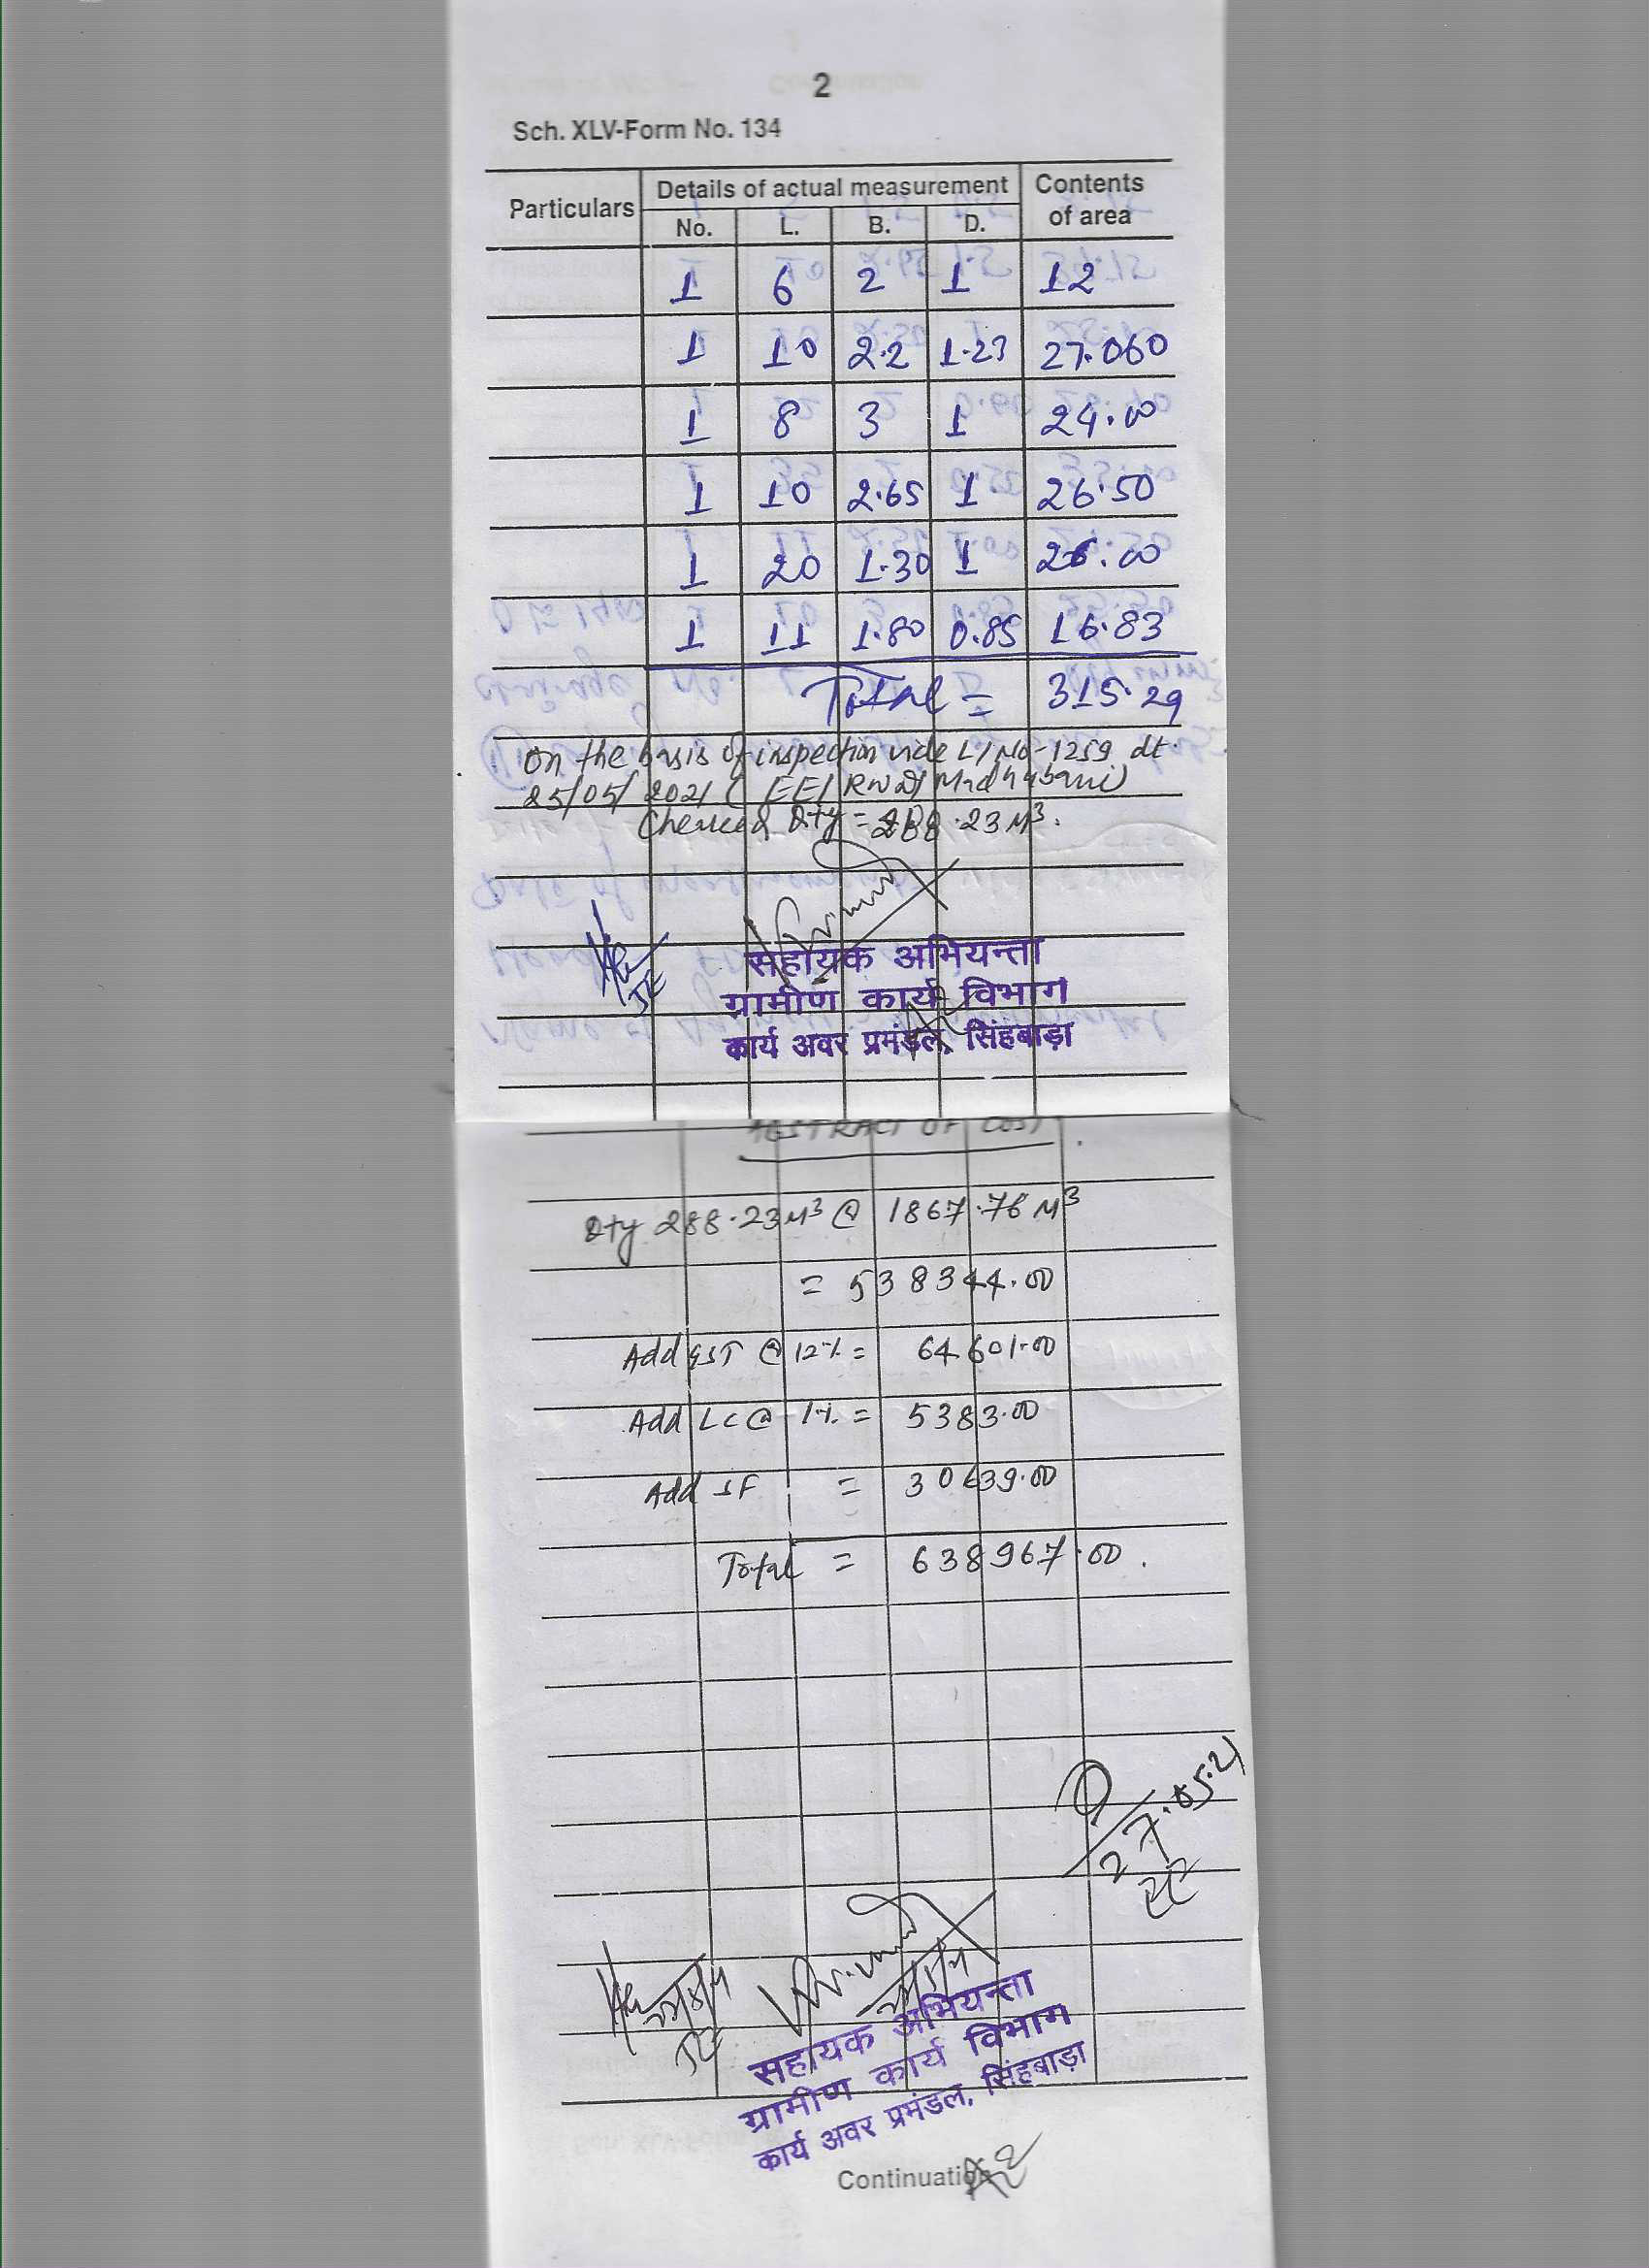 2
Sch. XLV-Form No. 134
Particulars Details of actual measurement Contents of area
No. L. B. D.
1 6 2 1 12
1 10 2.2 1.23 27.060
1 8 3 1 24.00
1 10 2.65 1 26.50
1 20 1.30 1 26.00
1 11 1.80 0.85 16.83
Total = 315.29
On the basis of inspection vide L/No-1259 dt.
25/05/2021 ( EE/RWD/Madhubani)
Checked Qty = 288.23 M³.
JE
सहायक अभियन्ता
ग्रामीण कार्य विभाग
कार्य अवर प्रमंडल, सिंहबाड़ा
ABSTRACT OF COST
Qty 288.23 M³ @ 1867.76 M³
= 538344.00
Add GST @ 12% = 64601.00
Add LC @ 1% = 5383.00
Add SF = 30639.00
Total = 638967.00.
27.05.21
EE
JE
सहायक अभियन्ता
ग्रामीण कार्य विभाग
कार्य अवर प्रमंडल, सिंहबाड़ा
Continuation